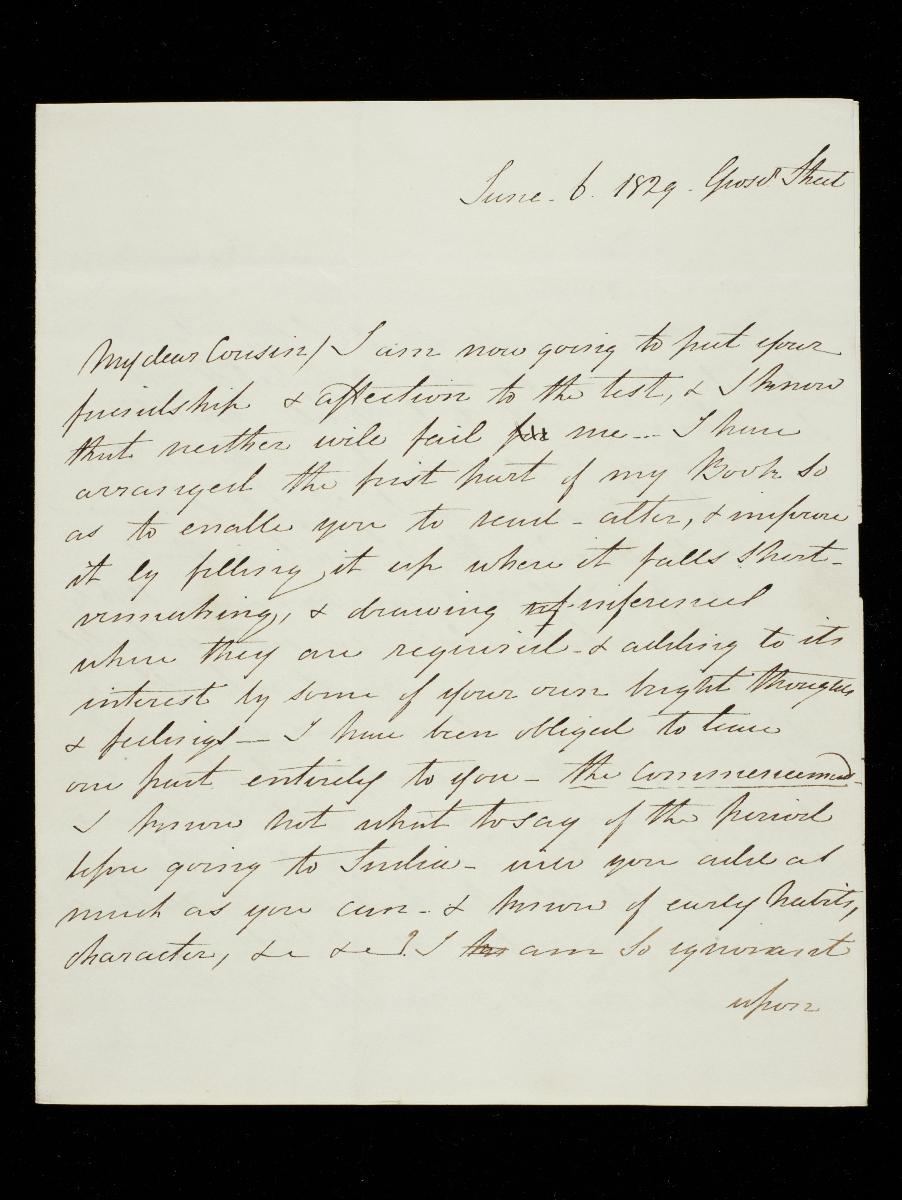 June. 6. 1829. Grosr. Street
My dear Cousin / I am now going to put your
friendship & affection to the test, & I know
that neither will fail me... I have
arranged the first part of my Book so
as to enable you to read - alter, & improve
it by filling it up where it falls short -
remarking, & drawing inferences
where they are required - & adding to its
interest by some of your own bright thoughts
& feelings — I have been obliged to leave
one part entirely to you - the commencement -
I know not what to say of the period
before going to India - will you add as
much as you can - & know of early habits,
character, &c &c? I am so ignorant
upon